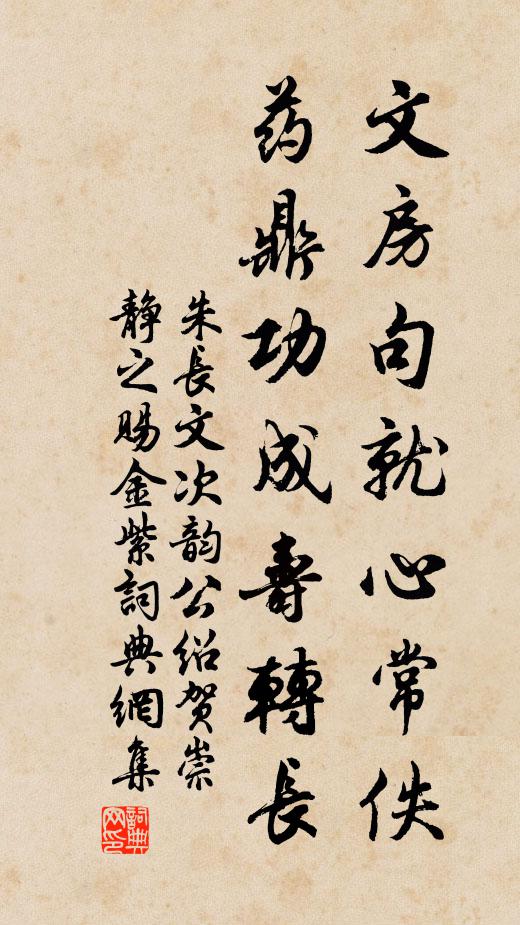 文房句就心常佚
药鼎功成壽轉長
朱長文次韵公绍贺崇
靜之賜金紫詞典網集
詞典网印